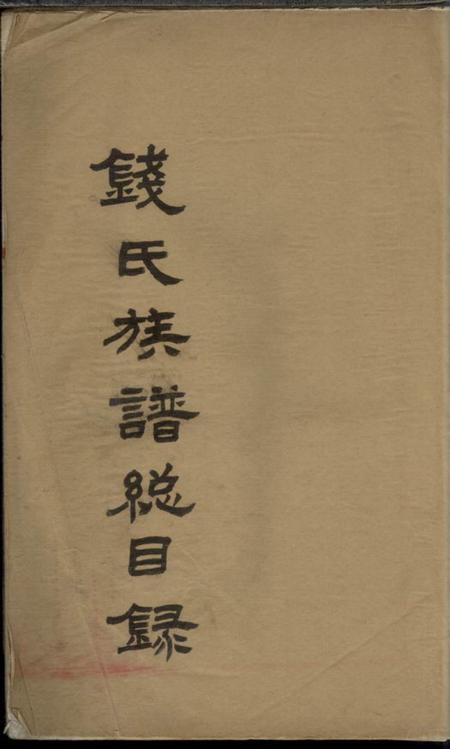 錢氏族譜緫目録